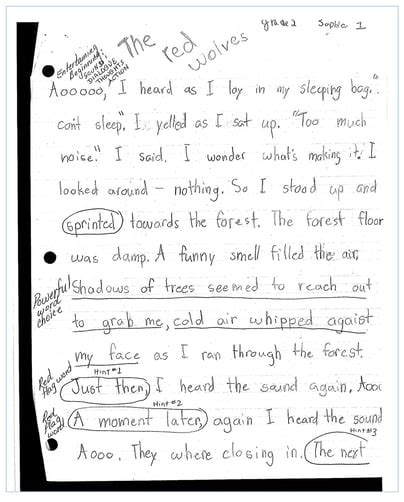 grade 2 Sophie 1
The red wolves
Entertaining
Beginning:
SOUND
DIALOGUE
THOUGHTS
ACTION
Aooooo, I heard as I lay in my sleeping bag. "I
can't sleep". I yelled as I sat up. "Too much
noise." I said. I wonder what's making it. I
looked around – nothing. So I stood up and
sprinted towards the forest. The forest floor
was damp. A funny smell filled the air,
Powerful
word
choice
Shadows of trees seemed to reach out
to grab me, cold air whipped agaist
my face as I ran through the forest.
Red
flag word
Hint #1
Just then, I heard the sound again, Aooo
Red
flag
word
Hint #2
A moment later, again I heard the sound
Hint #3
Aooo. They where closing in. The next